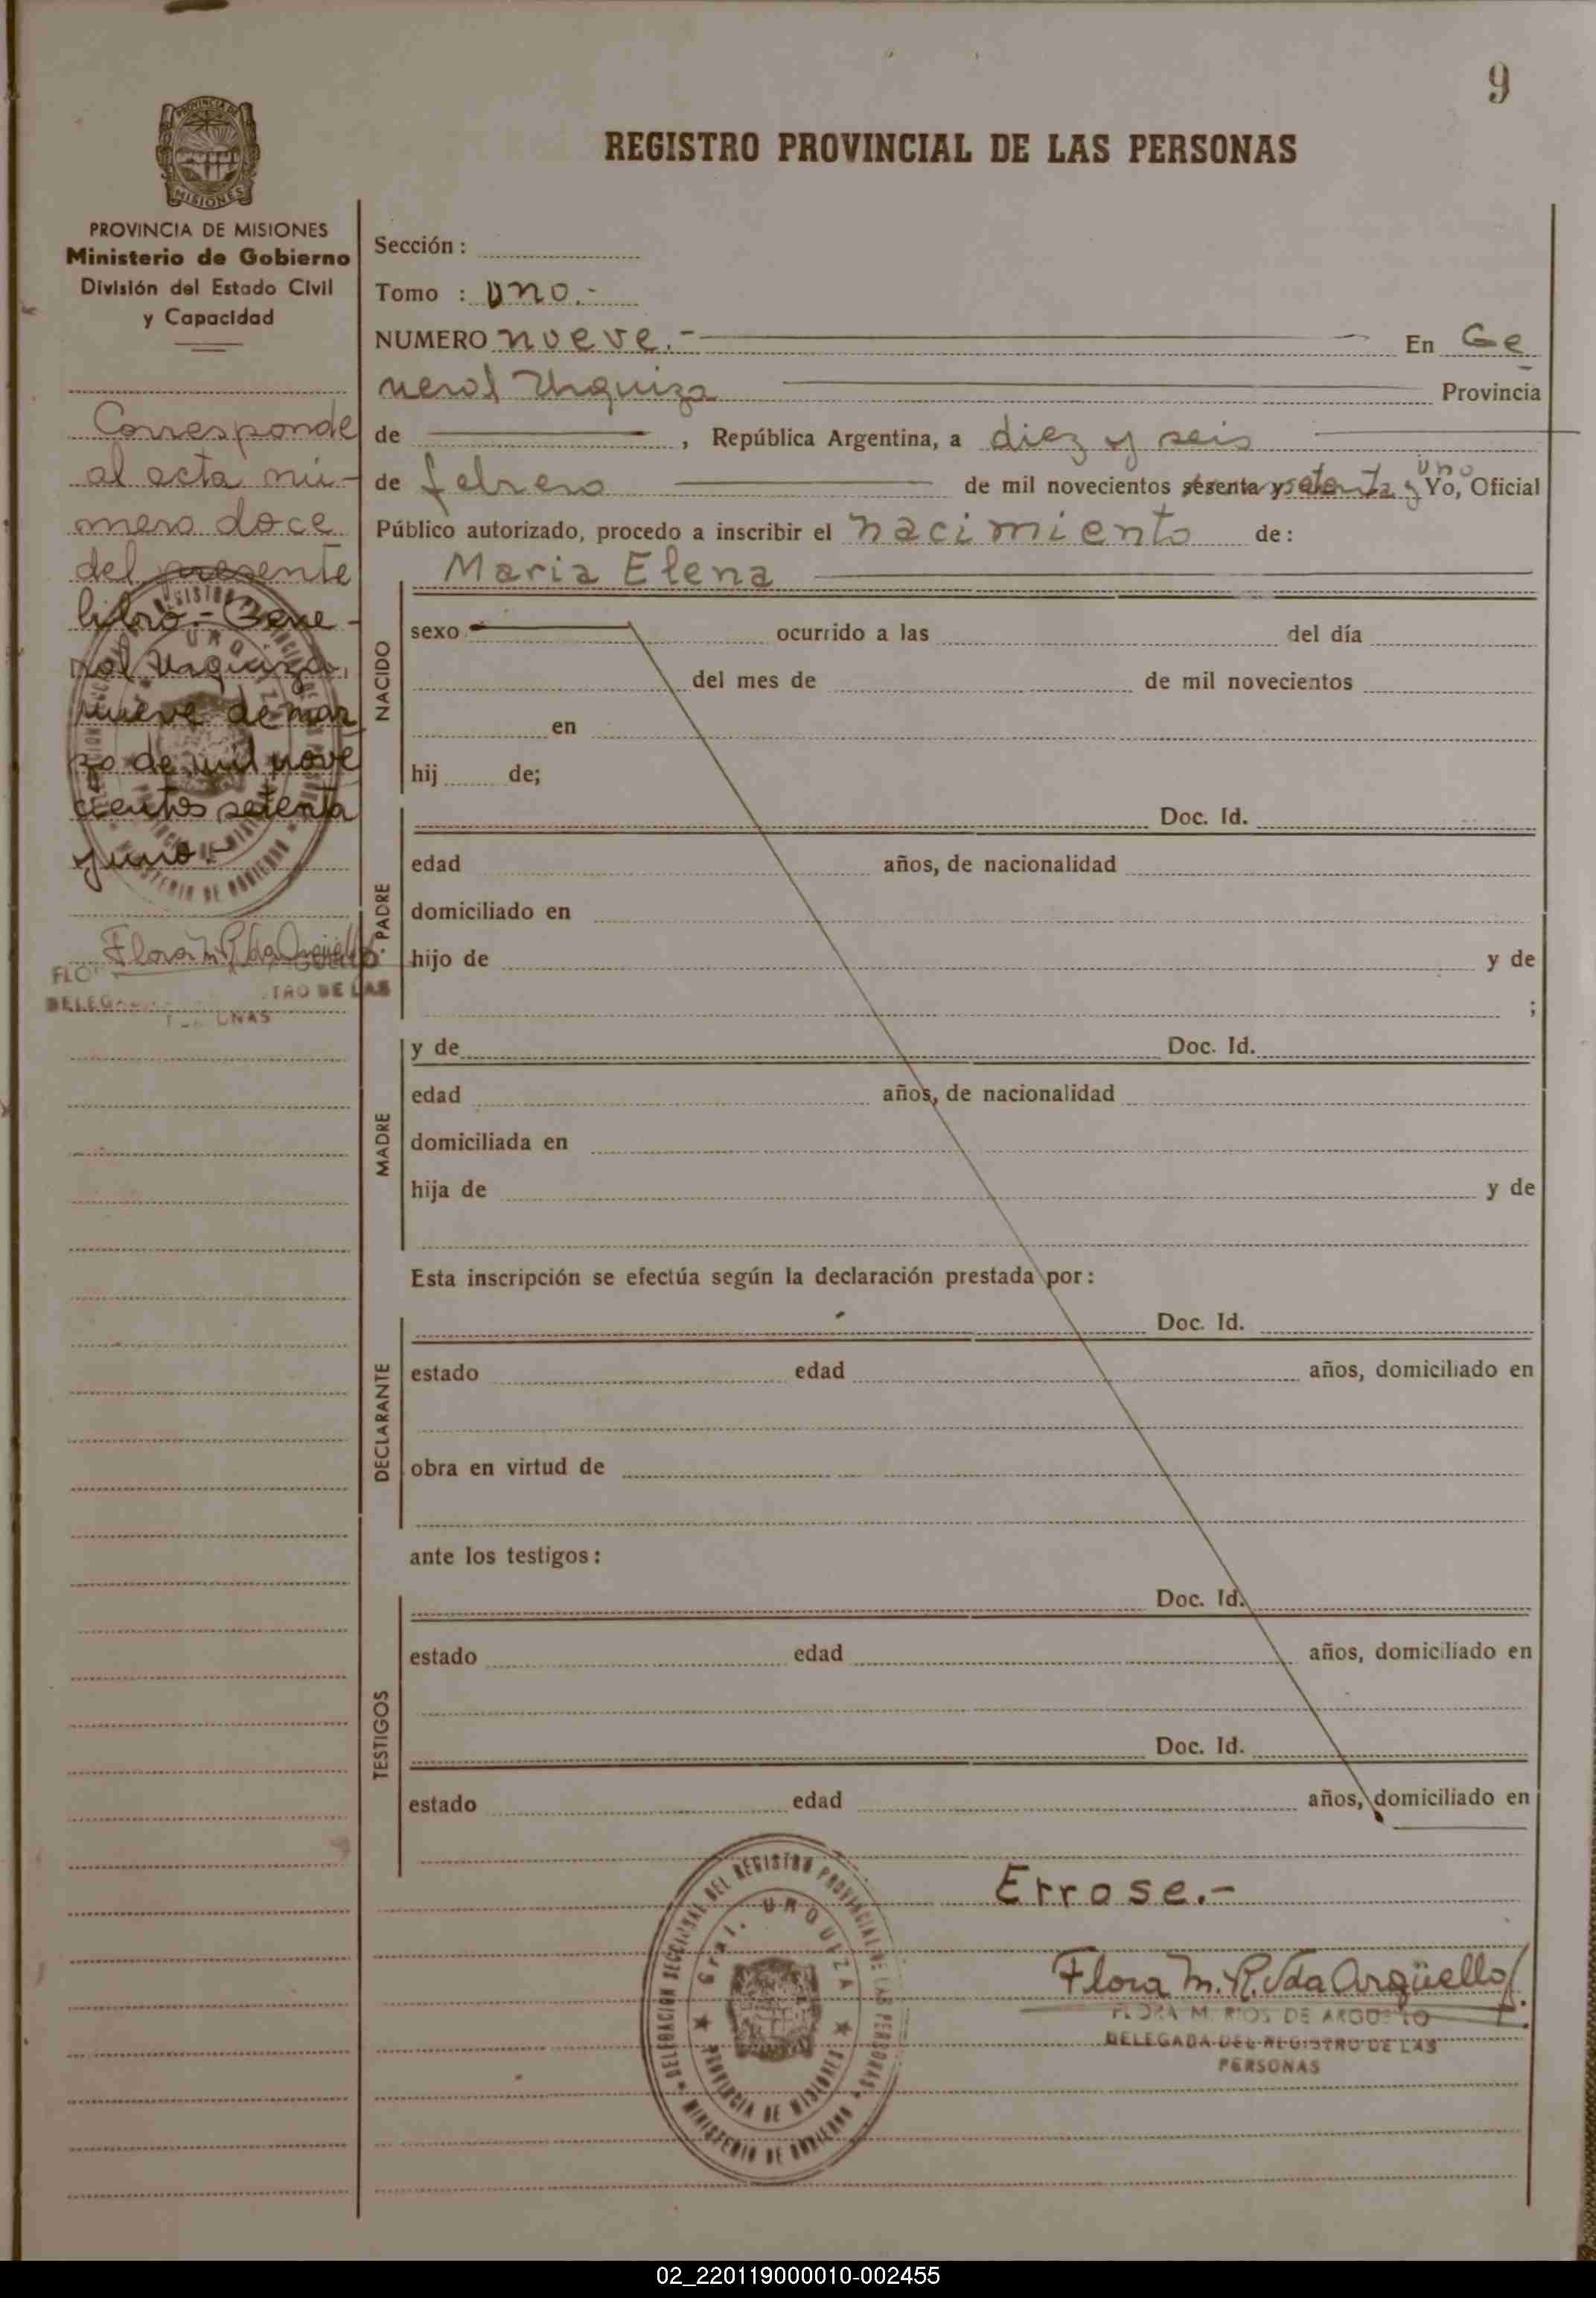 9
REGISTRO PROVINCIAL DE LAS PERSONAS
PROVINCIA DE MISIONES
Ministerio de Gobierno
División del Estado Civil
y Capacidad
Corresponde
al acta nú-
mero doce
del presente
libro.- Gene-
ral Urquiza,
nueve de mar
zo de mil nove
cientos setenta
y uno.-
Flora M. R. Vda Argüello
DELEGADA REGISTRO DE LAS
PERSONAS
Sección :
Tomo : uno.-
NUMERO nueve.- En Ge
neral Urquiza Provincia
de , República Argentina, a diez y seis
de febrero de mil novecientos sesenta y setenta y uno Yo, Oficial
Público autorizado, procedo a inscribir el nacimiento de:
Maria Elena
NACIDO
sexo ocurrido a las del día
del mes de de mil novecientos
en
hij de;
PADRE
Doc. Id.
edad años, de nacionalidad
domiciliado en
hijo de y de
;
MADRE
y de Doc. Id.
edad años, de nacionalidad
domiciliada en
hija de y de
Esta inscripción se efectúa según la declaración prestada por :
DECLARANTE
Doc. Id.
estado edad años, domiciliado en
obra en virtud de
ante los testigos :
TESTIGOS
Doc. Id.
estado edad años, domiciliado en
Doc. Id.
estado edad años, domiciliado en
Errose.-
DELEGACION SECCIONAL DEL REGISTRO PROVINCIAL DE LAS PERSONAS
MINISTERIO DE GOBIERNO
Gral. URQUIZA
PROVINCIA DE MISIONES
Flora M. R. Vda Argüello
FLORA M. RIOS DE ARGUELLO
DELEGADA DEL REGISTRO DE LAS
PERSONAS
02_220119000010-002455